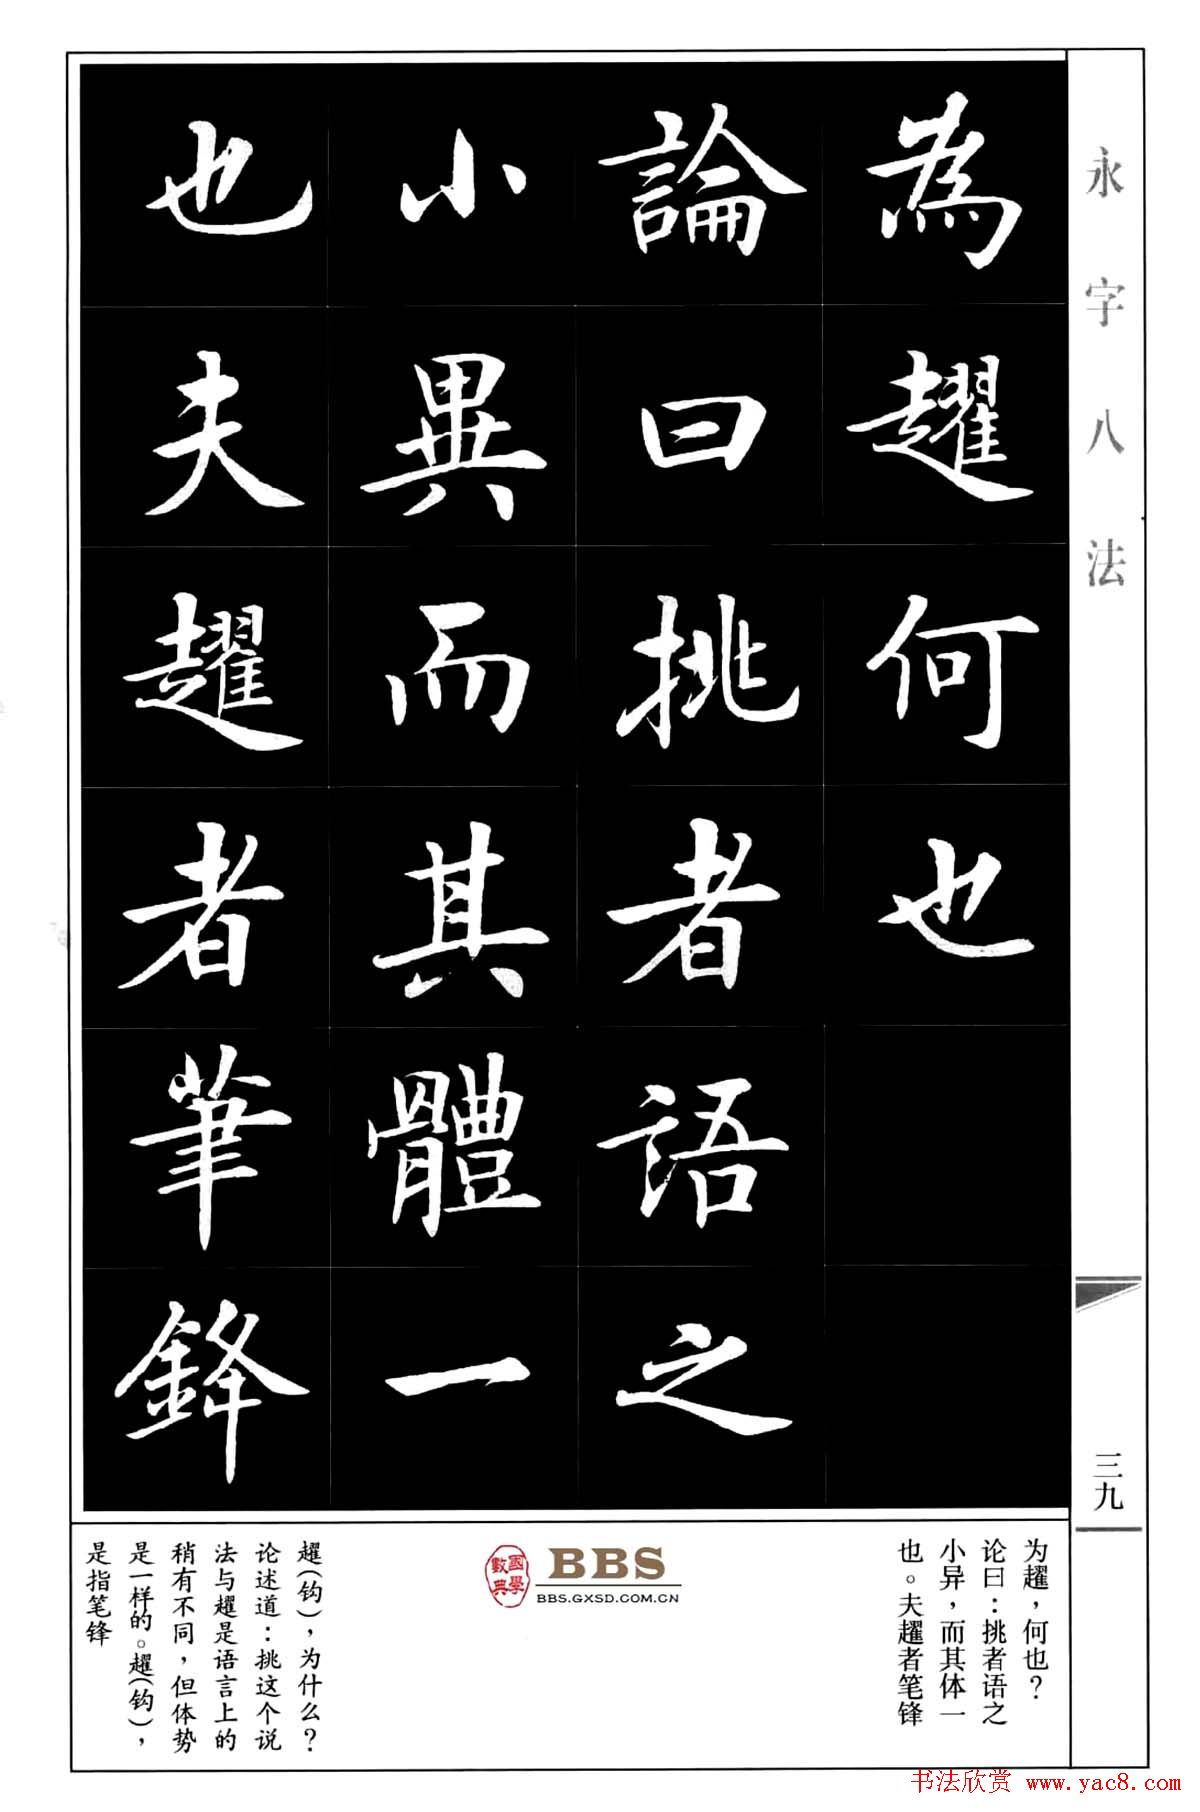 永字八法
為趯何也
論曰挑者語之
小異而其體一
也夫趯者筆鋒
三九
为趯，何也？
论曰：挑者语之
小异，而其体一
也。夫趯者笔锋
國學數典
BBS
BBS.GXSD.COM.CN
趯(钩)，为什么？
论述道：挑这个说
法与趯是语言上的
稍有不同，但体势
是一样的。趯(钩)，
是指笔锋
书法欣赏 www.yac8.com